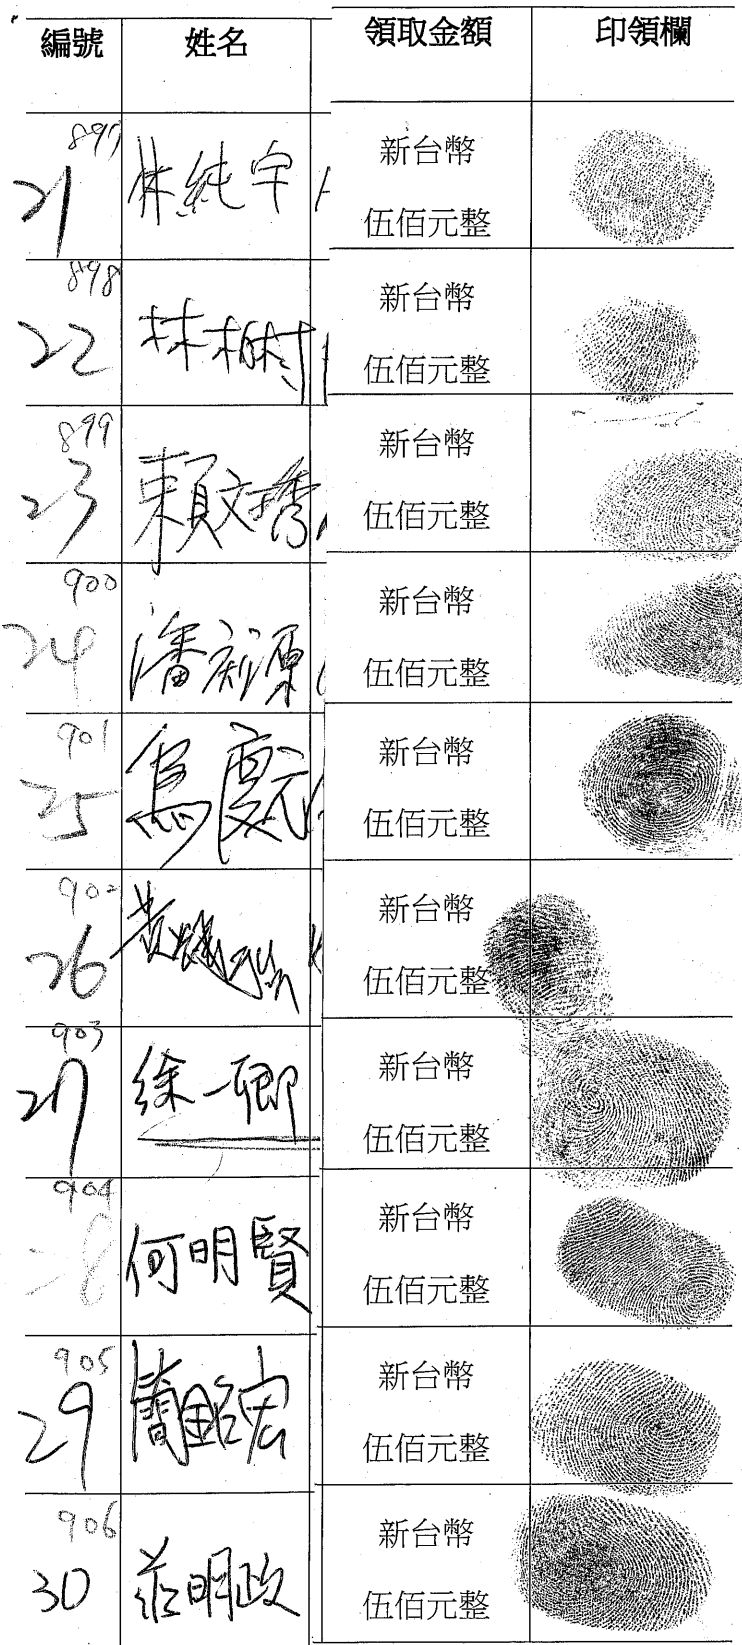 編號 姓名 領取金額 印領欄
897
21 林純宇 新台幣
伍佰元整
898
22 林樹 新台幣
伍佰元整
899
23 賴文 新台幣
伍佰元整
900
24 潘 源 新台幣
伍佰元整
901
25 元 新台幣
伍佰元整
902
26 黃 新台幣
伍佰元整
903
27 徐一卿 新台幣
伍佰元整
904
28 何明賢 新台幣
伍佰元整
905
29 簡銘宏 新台幣
伍佰元整
906
30 莊明政 新台幣
伍佰元整